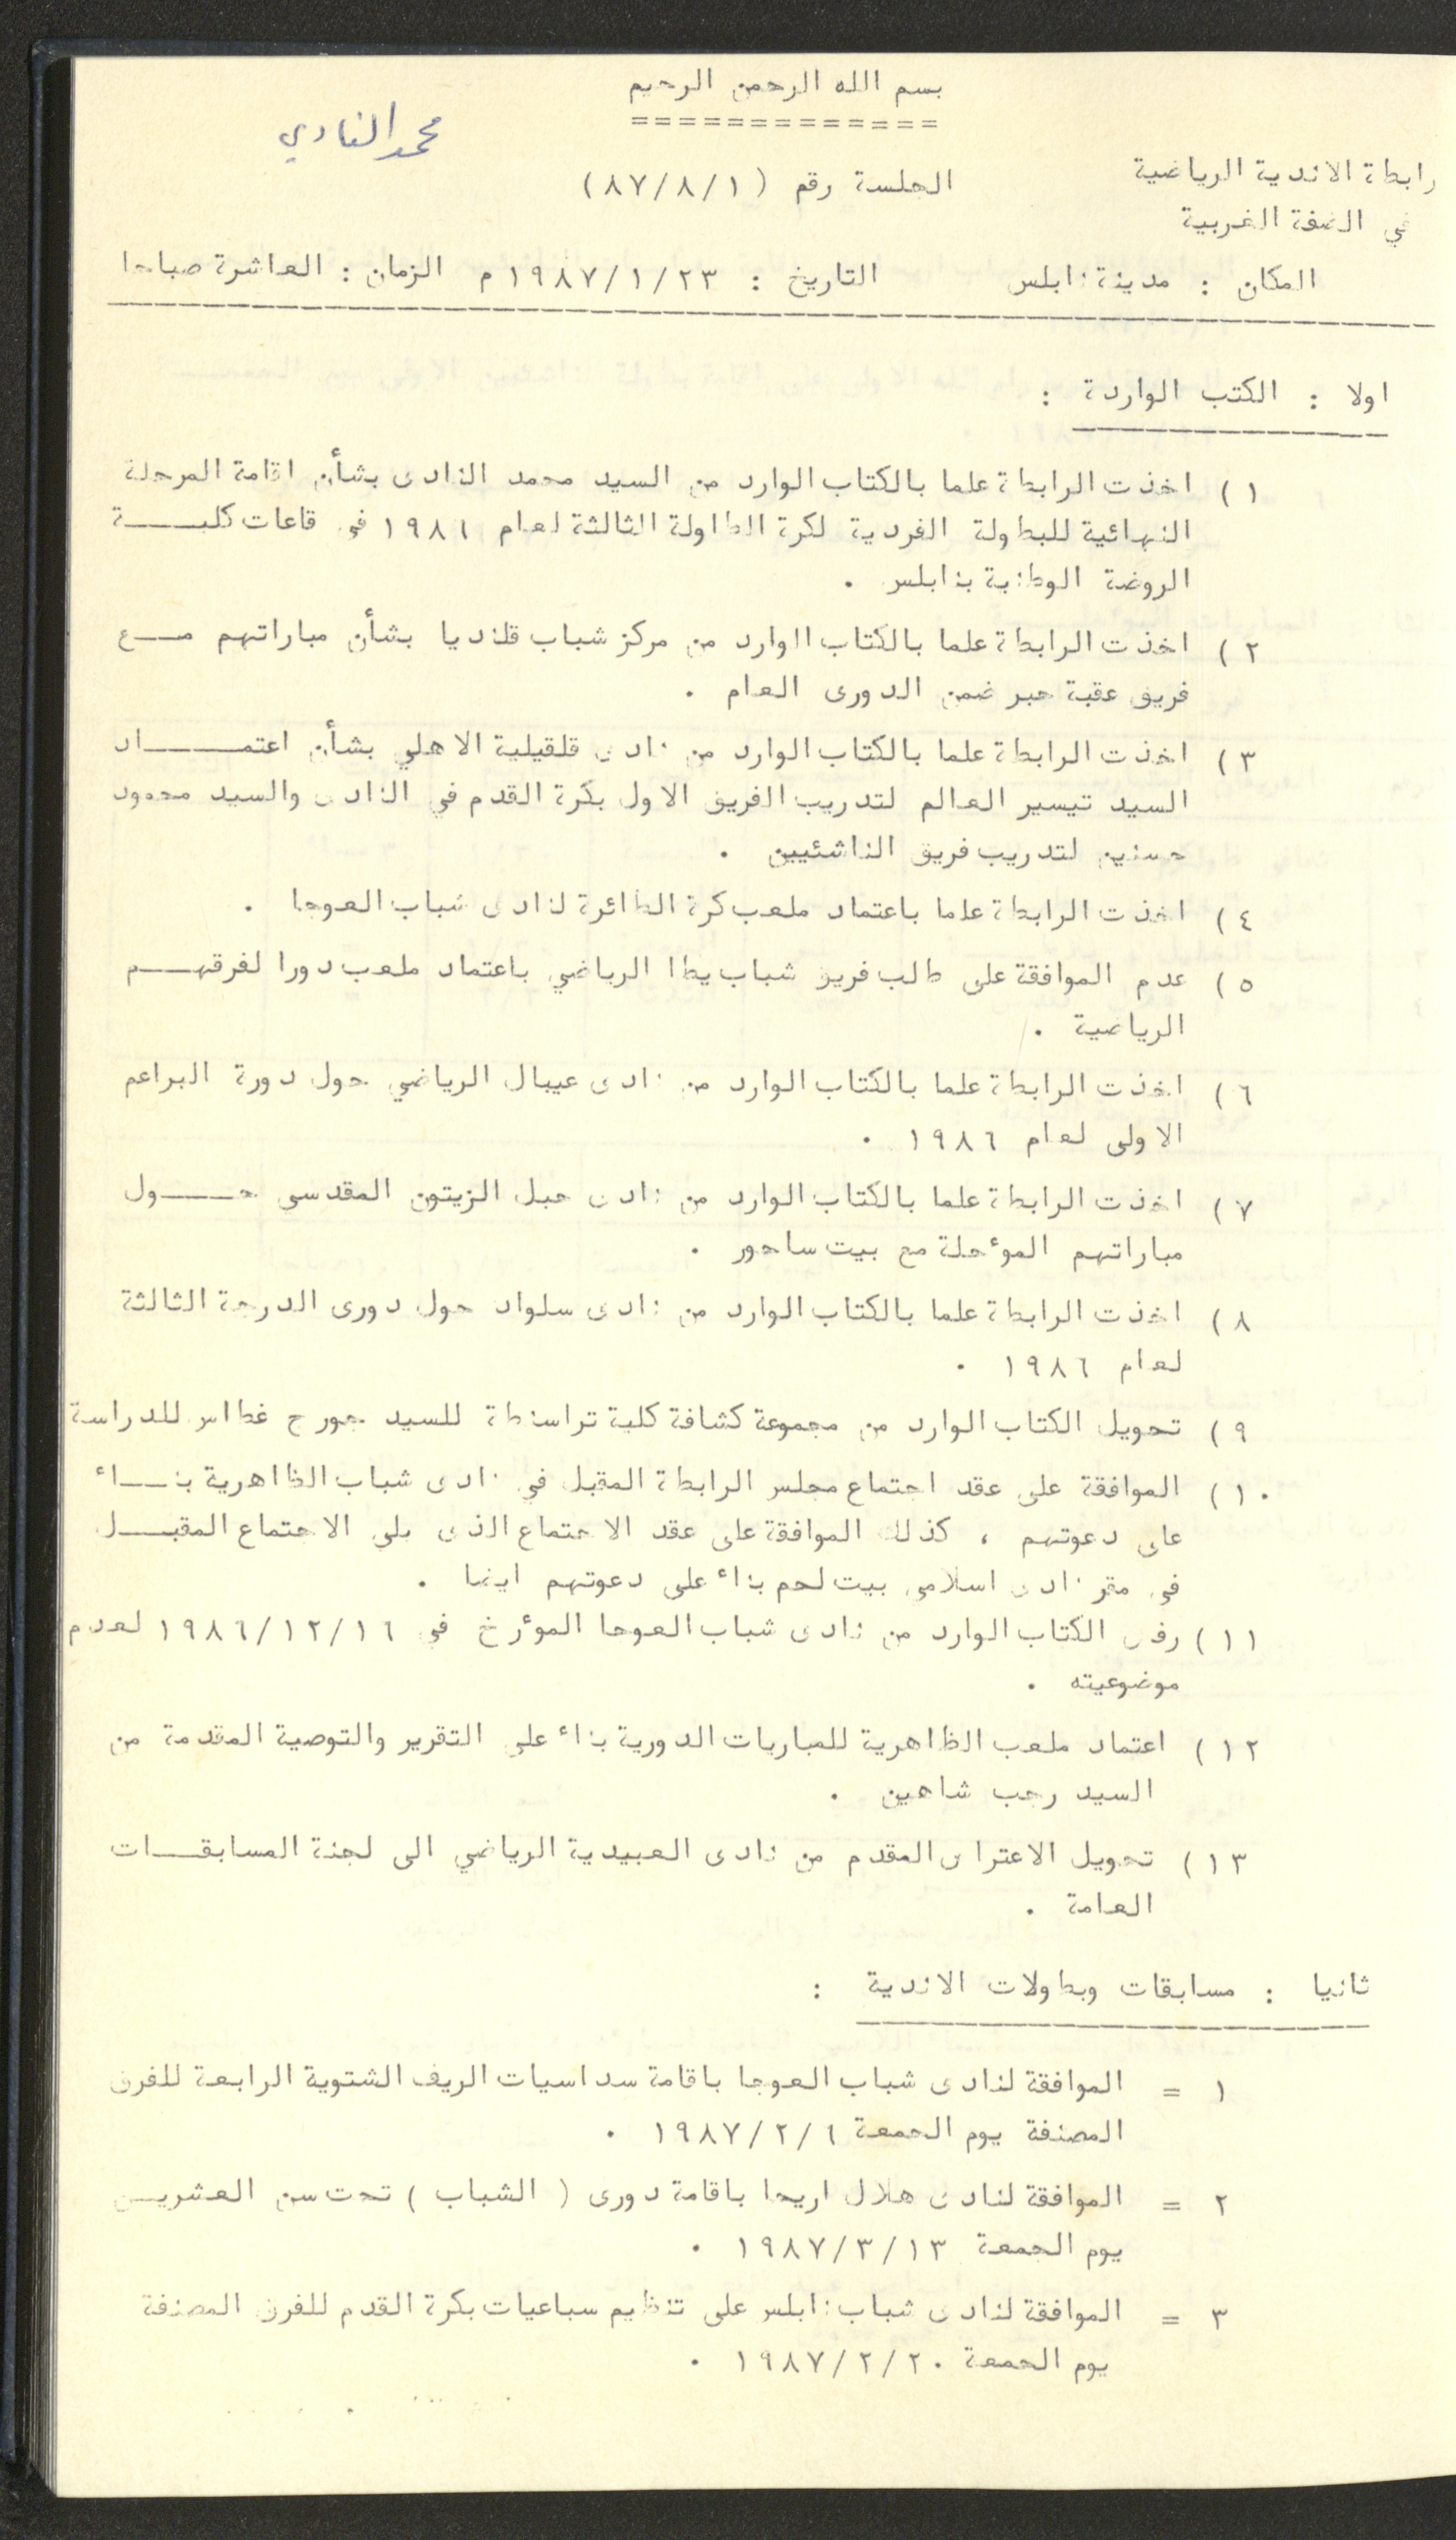 بسم الله الرحمن الرحيم
=============
محمد النادي
رابطة الاندية الرياضية
في الضفة الغربية
الجلسة رقم (٨٧/٨/١)
المكان : مدينة نابلس التاريخ : ١٩٨٧/١/٢٣ م الزمان : العاشرة صباحا
اولا : الكتب الواردة :
١) اخذت الرابطة علما بالكتاب الوارد من السيد محمد النادى بشأن اقامة المرحلة
النهائية للبطولة الفردية لكرة الطاولة الثالثة لعام ١٩٨٦ في قاعات كليـــــة
الروضة الوطنية بنابلس .
٢) اخذت الرابطة علما بالكتاب الوارد من مركز شباب قلنديا بشأن مباراتهم مـــع
فريق عقبة جبر ضمن الدورى العام .
٣) اخذت الرابطة علما بالكتاب الوارد من نادى قلقيلية الاهلي بشأن اعتمـــــاد
السيد تيسير العالم لتدريب الفريق الاول بكرة القدم في النادى والسيد محمود
حسنين لتدريب فريق الناشئيين .
٤) اخذت الرابطة علما باعتماد ملعب كرة الطائرة لنادى شباب العوجا .
٥) عدم الموافقة على طلب فريق شباب يطا الرياضي باعتماد ملعب دورا لفرقهـــم
الرياضية .
٦) اخذت الرابطة علما بالكتاب الوارد من نادى عيبال الرياضي حول دورة البراعم
الاولى لعام ١٩٨٦ .
٧) اخذت الرابطة علما بالكتاب الوارد من نادى جبل الزيتون المقدسي حـــــول
مباراتهم المؤجلة مع بيت ساحور .
٨) اخذت الرابطة علما بالكتاب الوارد من نادى سلواد حول دورى الدرجة الثالثة
لعام ١٩٨٦ .
٩) تحويل الكتاب الوارد من مجموعة كشافة كلية تراسنطة للسيد جورج غطاس للدراسة
١٠) الموافقة على عقد اجتماع مجلس الرابطة المقبل في نادى شباب الظاهرية بنـــاء
على دعوتهم ، كذلك الموافقة على عقد الاجتماع الذى يلي الاجتماع المقبـــل
في مقر نادى اسلامي بيت لحم بناء على دعوتهم ايضا .
١١) رفض الكتاب الوارد من نادى شباب العوجا المؤرخ في ١٩٨٦/١٢/١٦ لعدم
موضوعيته .
١٢) اعتماد ملعب الظاهرية للمباريات الدورية بناء على التقرير والتوصية المقدمة من
السيد رجب شاهين .
١٣) تحويل الاعتراض المقدم من نادى العبيدية الرياضي الى لجنة المسابقـــات
العامة .
ثانيا : مسابقات وبطولات الاندية :
١ = الموافقة لنادى شباب العوجا باقامة سداسيات الريف الشتوية الرابعة للفرق
المصنفة يوم الجمعة ١٩٨٧/٢/٦ .
٢ = الموافقة لنادى هلال اريحا باقامة دورى (الشباب) تحت سن العشريـــن
يوم الجمعة ١٩٨٧/٣/١٣ .
٣ = الموافقة لنادى شباب نابلس على تنظيم سباعيات بكرة القدم للفرق المصنفة
يوم الجمعة ١٩٨٧/٢/٢٠ .